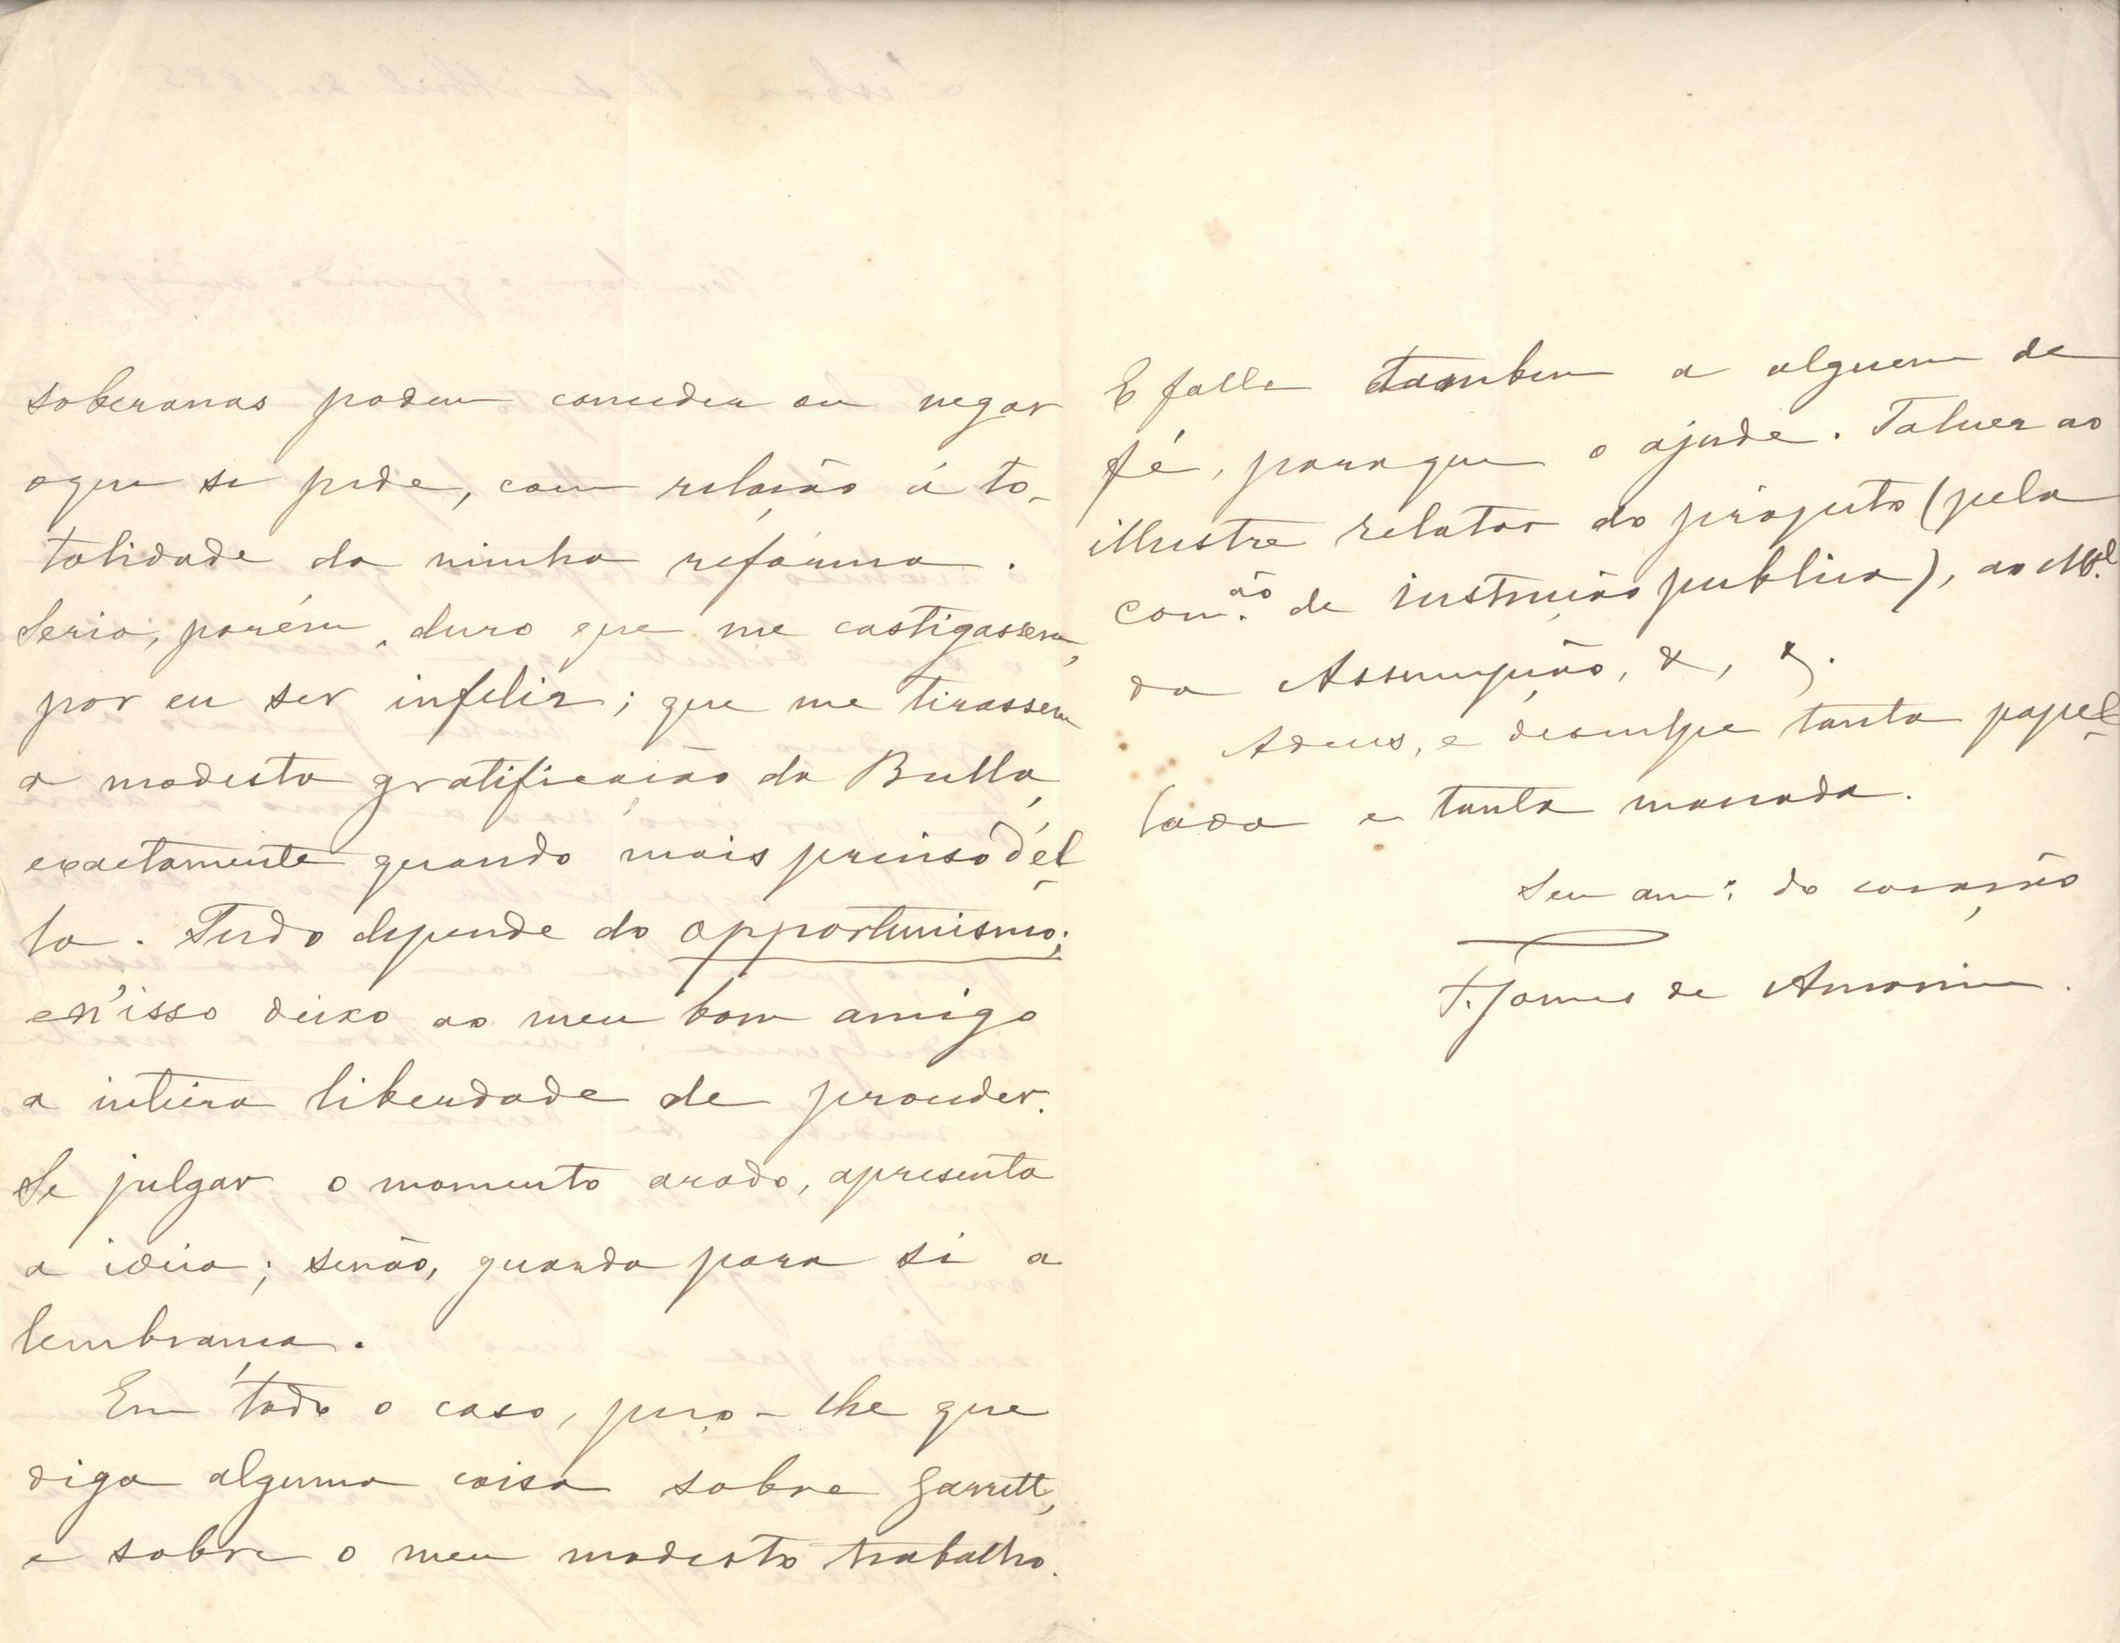 soberanas podem conceder ou negar
o que se pede, com relação á to-
talidade da minha refórma.
Seria, porém, duro que me castigassem,
por eu ser infeliz; que me tirassem
a modesta gratificação da Bulla,
exactamente quando mais preciso d'él-
la. Tudo depende do opportunismo;
e n'isso deixo ao meu bom amigo
a inteira liberdade de proceder.
Se julgar o momento azado, apresenta
a ideia; senão, guarda para si a
lembrança.
Em todo o caso, peço-lhe que
diga alguma coisa sobre Garrett,
e sobre o meu modesto trabalho.
E falle tambem a alguem de
fé, para que o ajude. Talvez ao
illustre relator do projecto (pela
com.ão de instrução publica), ao M.el
da Assumpção, &, &.
Adeus, e desculpe tanta papel-
lada e tanta massada.
Seu am.º do coração
F. Gomes de Amorim.